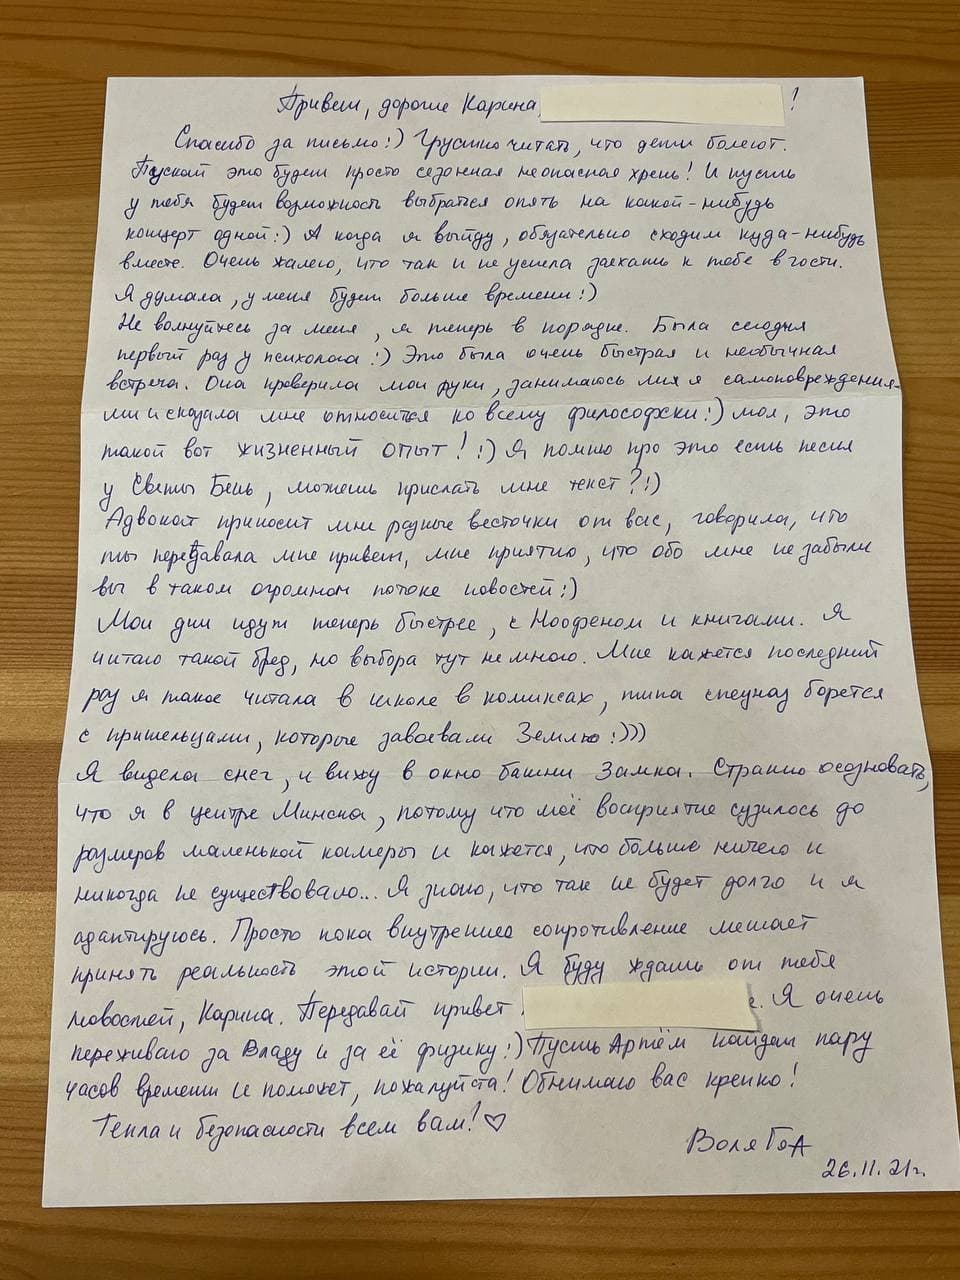 Привет, дорогие Карина, !
Спасибо за письмо:) Грустно читать, что дети болеют.
Пускай это будет просто сезонная неопасная хрень! И пусть
у тебя будет возможность выбраться опять на какой-нибудь
концерт одной:) А когда я выйду, обязательно сходим куда-нибудь
вместе. Очень жалею, что так и не успела заехать к тебе в гости.
Я думала, у меня будет больше времени:)
Не волнуйтесь за меня, я теперь в порядке. Была сегодня
первый раз у психолога:) Это была очень быстрая и необычная
встреча. Она проверила мои руки, занимаюсь ли я самоповреждения-
ми и сказала мне относиться ко всему философски:) мол, это
такой вот жизненный опыт! :) Я помню про это есть песня
у Светы Бень, можешь прислать мне текст?:)
Адвокат приносит мне разные весточки от вас, говорила, что
ты передавала мне привет, мне приятно, что обо мне не забыли
вы в таком огромном потоке новостей:)
Мои дни идут теперь быстрее, с Ноофеном и книгами. Я
читаю такой бред, но выбора тут не много. Мне кажется последний
раз я такое читала в школе в комиксах, типа спецназ борется
с пришельцами, которые завоевали Землю:)))
Я видела снег, и вижу в окно башни Замка. Странно осознавать,
что я в центре Минска, потому что моё восприятие сузилось до
размеров маленькой камеры и кажется, что больше ничего и
никогда не существовало... Я знаю, что так не будет долго и я
адаптируюсь. Просто пока внутреннее сопротивление мешает
принять реальность этой истории. Я буду ждать от тебя
новостей, Карина. Передавай привет . Я очень
переживаю за Владу и за её физику:) Пусть Артём найдет пару
часов времени и поможет, пожалуйста! Обнимаю вас крепко!
Тепла и безопасности всем вам! ♡
Воля
26.11.21г.